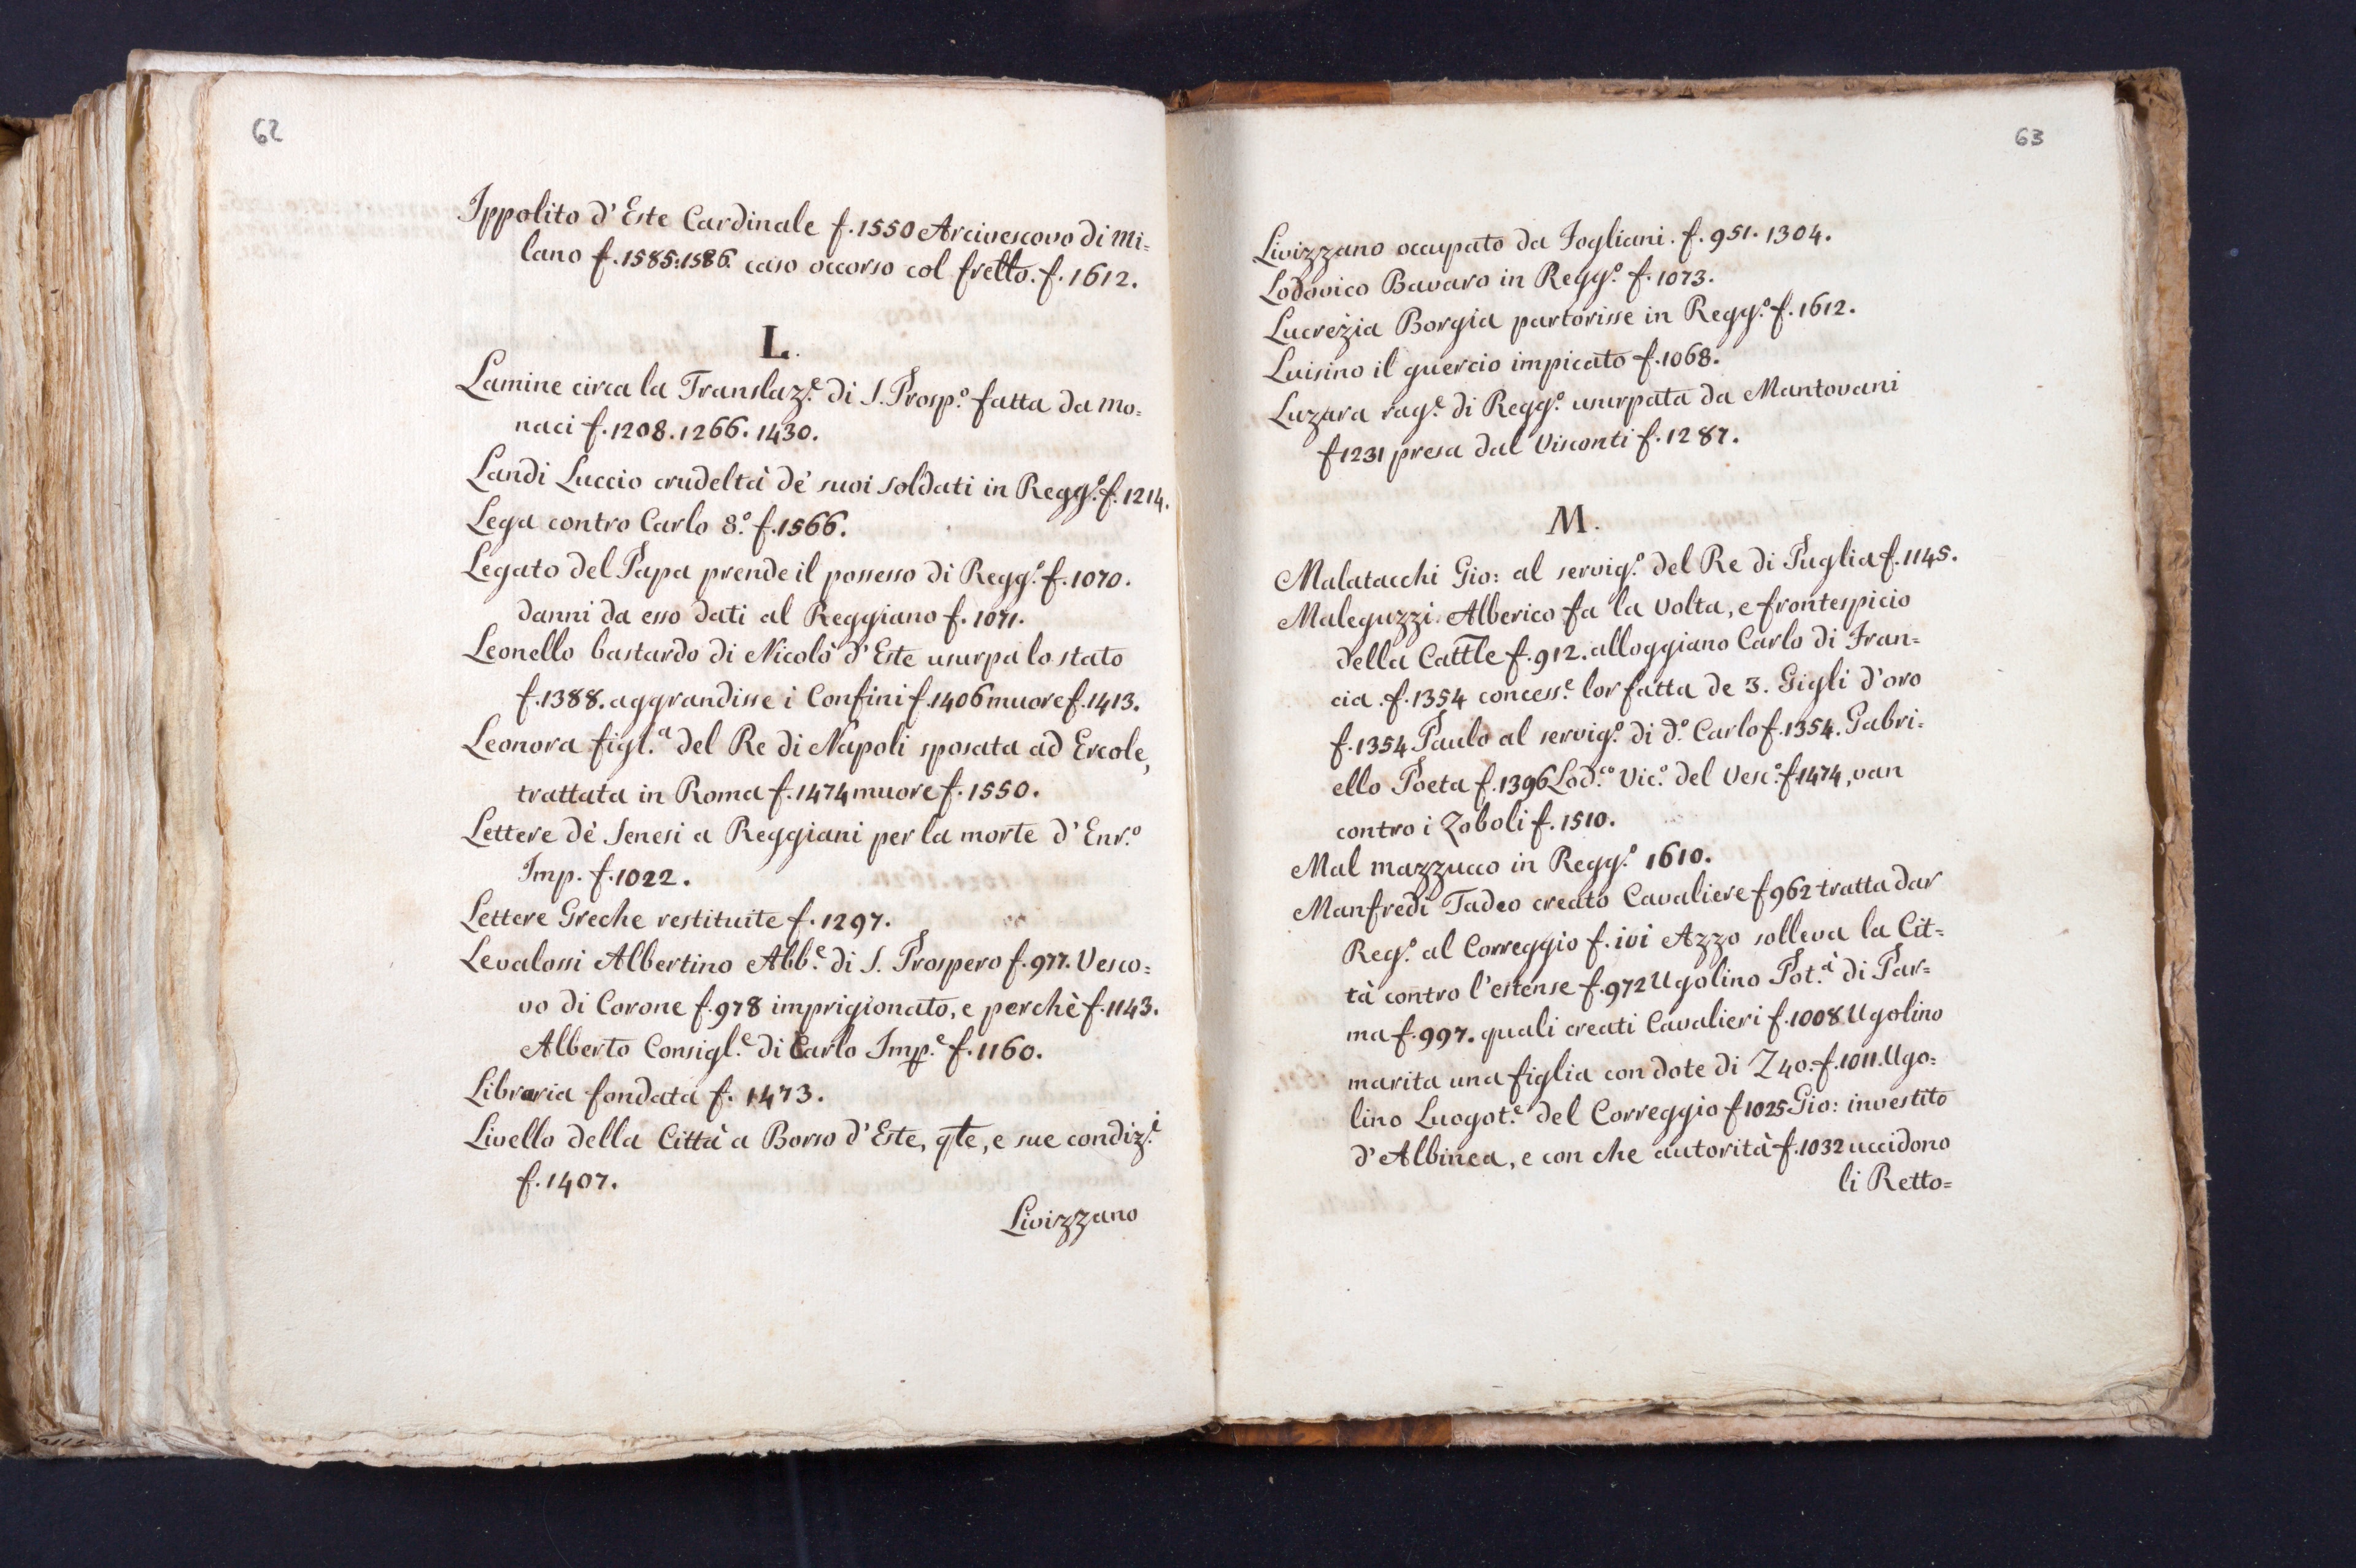 62
Ippolito d'Este Cardinale f. 1550 Arcivescovo di Mi=
lano f. 1585:1586. caso occorso col frello. f. 1612.
L.
Lamine circa la Translaz.e di S. Prosp.o fatta da Mo=
naci f. 1208. 1266. 1430.
Landi Luccio crudeltà de' suoi soldati in Regg.o f. 1214.
Lega contro Carlo 8.o f. 1566.
Legato del Papa prende il possesso di Regg.o f. 1070.
danni da esso dati al Reggiano f. 1071.
Leonello bastardo di Nicolò d'Este usurpa lo stato
f. 1388. aggrandisse i Confini f. 1406 muore f. 1413.
Leonora figl.a del Re di Napoli sposata ad Ercole,
trattata in Roma f. 1474 muore f. 1550.
Lettere dè Senesi a Reggiani per la morte d'Enr.o
Imp. f. 1022.
Lettere Greche restituite f. 1297.
Levalossi Albertino Abb.e di S. Prospero f. 977. Vesco=
vo di Corone f. 978 imprigionato, e perchè f. 1143.
Alberto Consigl.e di Carlo Imp.e f. 1160.
Libraria fondata f. 1473.
Livello della Città a Borso d'Este, qte, e sue condiz.i
f. 1407.
Livizzano
63
Livizzano occupato da Fogliani. f. 951. 1304.
Lodovico Bavaro in Regg.o f. 1073.
Lucrezia Borgia partorisse in Regg.o f. 1612.
Luisino il guercio impicato f. 1068.
Luzara rag.e di Regg.o usurpata da Mantovani
f 1231 presa dal Visconti f. 1287.
M.
Malatacchi Gio: al servig.o del Re di Puglia f. 1145.
Maleguzzi Alberico fa la volta, e frontespicio
della Cattle f. 912. alloggiano Carlo di Fran=
cia. f. 1354 concess.e lor fatta de 3. Gigli d'oro
f. 1354 Paulo al servig.o di d.o Carlo f. 1354. Gabri=
ello Poeta f. 1396 Lod.co Vic.o del Vesc.o f 1474, van
contro i Zoboli f. 1510.
Mal mazzucco in Regg.o 1610.
Manfredi Tadeo creato Cavaliere f 962 tratta dar
Reg.o al Correggio f. ivi Azzo solleva la Cit=
tà contro l'estense f. 972 Ugolino Pot.à di Par=
ma f. 997. quali creati Cavalieri f. 1008 Ugolino
marita una figlia con dote di Z 40. f. 1011. Ugo=
lino Luogot.e del Correggio f 1025 Gio: investito
d'Albinea, e con che autorità f. 1032 uccidono
li Retto=